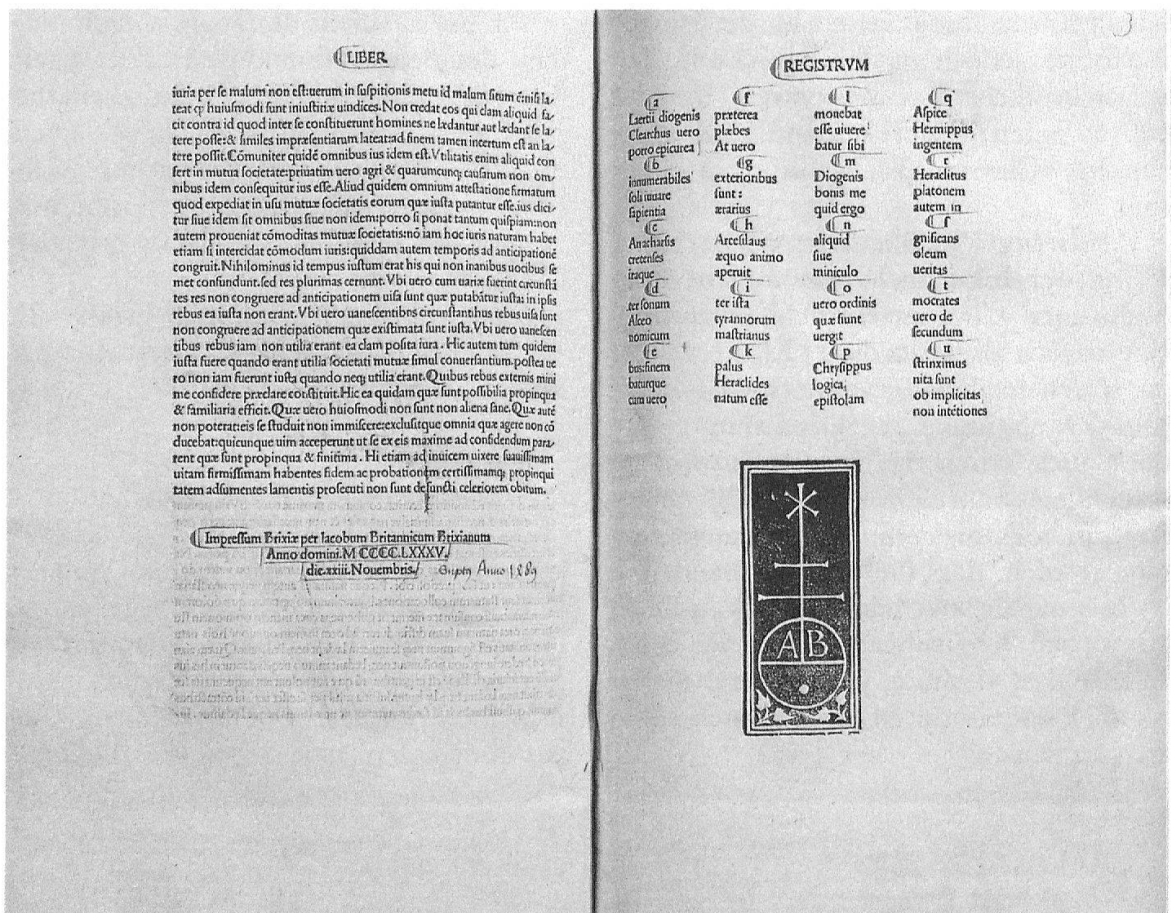 LIBER
iuria per se malum non est:uerum in suspitionis metu id malum situm é:nisi la-
teat ꝙ huiusmodi sunt iniustitiæ uindices. Non credat eos qui clam aliquid fa-
cit contra id quod inter se constituerunt homines ne lædantur aut lædant se la-
tere posse:& si miles impræsentiarum lateat:ad finem tamen incertum est an la-
tere possit. Cómuniter quidé omnibus ius idem est. Vtilitatis enim aliquid con
fert in mutua societate:priuatim uero agri & quarumcunqȝ causarum non om-
nibus idem consequitur ius esse. Aliud quidem omnium attestatione firmatum
quod expediat in usu mutuæ societatis eorum quæ iusta putantur esse.ius dici-
tur siue idem sit omnibus siue non idem:porro si ponat tantum quispiam:non
autem proueniat cómoditas mutuæ societatis:nó iam hoc iuris naturam habet
etiam si intercidat cómodum iuris:quiddam autem temporis ad anticipationé
congruit. Nihilominus id tempus iustum erat his qui non inanibus uocibus se
met confundunt.sed res plurimas cernunt. Vbi uero cum uariæ fuerint circunstá
tes res non congruere ad anticipationem uisa sunt quæ putabátur iusta: in ipsis
rebus ea iusta non erant. Vbi uero uanescentibns circunstantibus rebus uisa sunt
non congruere ad anticipationem quæ existimata sunt iusta. Vbi uero uanescen
tibus rebus iam non utilia erant ea clam posita iura. Hic autem tum quidem
iusta fuere quando erant utilia societati mutuæ simul conuersantium.postea ue
ro non iam fuerunt iusta quando neqȝ utilia erant. Quibus rebus externis mini
me confidere præclare constituit. Hic ea quidam quæ sunt possibilia propinqua
& familiaria efficit. Quæ uero huiosmodi non sunt non aliena sane. Quæ auté
non poterat:eis se studuit non immiscere:exclusitque omnia quæ agere non có
ducebat:quicunque uim acceperunt ut se ex eis maxime ad confidendum para-
tent quæ sunt propinqua & finitima. Hi etiam ad inuicem uixere suauissimam
uitam firmissimam habentes fidem ac probationem certissimamqȝ propinqui
tatem adsumentes lamentis prosecuti non sunt defuncti celeriorem obitum.
Impressum Brixiæ per Iacobum Britannicum Brixianum
Anno domini.M CCCC.LXXXV.
die.xxiii.Nouembris. Anno 1289
REGISTRVM
a
Laertii diogenis
Clearchus uero
porro epicurea
b
innumerabiles
soli iuuare
sapientia
c
Anacharsis
cretenses
itaque
d
ter sonum
Alceo
nomicum
e
bus:finem
baturque
cum uero
f
præterea
plæbes
At uero
g
exterioribus
sunt:
ærarius
h
Arcesilaus
æquo animo
aperuit
i
ter ista
tyrannorum
mastrianus
k
palus
Heraclides
natum esse
l
monebat
esse uiuere
batur sibi
m
Diogenis
bonis me
quid ergo
n
aliquid
siue
miniculo
o
uero ordinis
quæ fiunt
uergit
p
Chrysippus
logica,
epistolam
q
Aspice
Hermippus
ingentem
r
Heraclitus
platonem
autem in
s
gnificans
oleum
ueritas
t
mocrates
uero de
secundum
u
strinximus
nita sunt
ob implicitas
non intétiones
A B